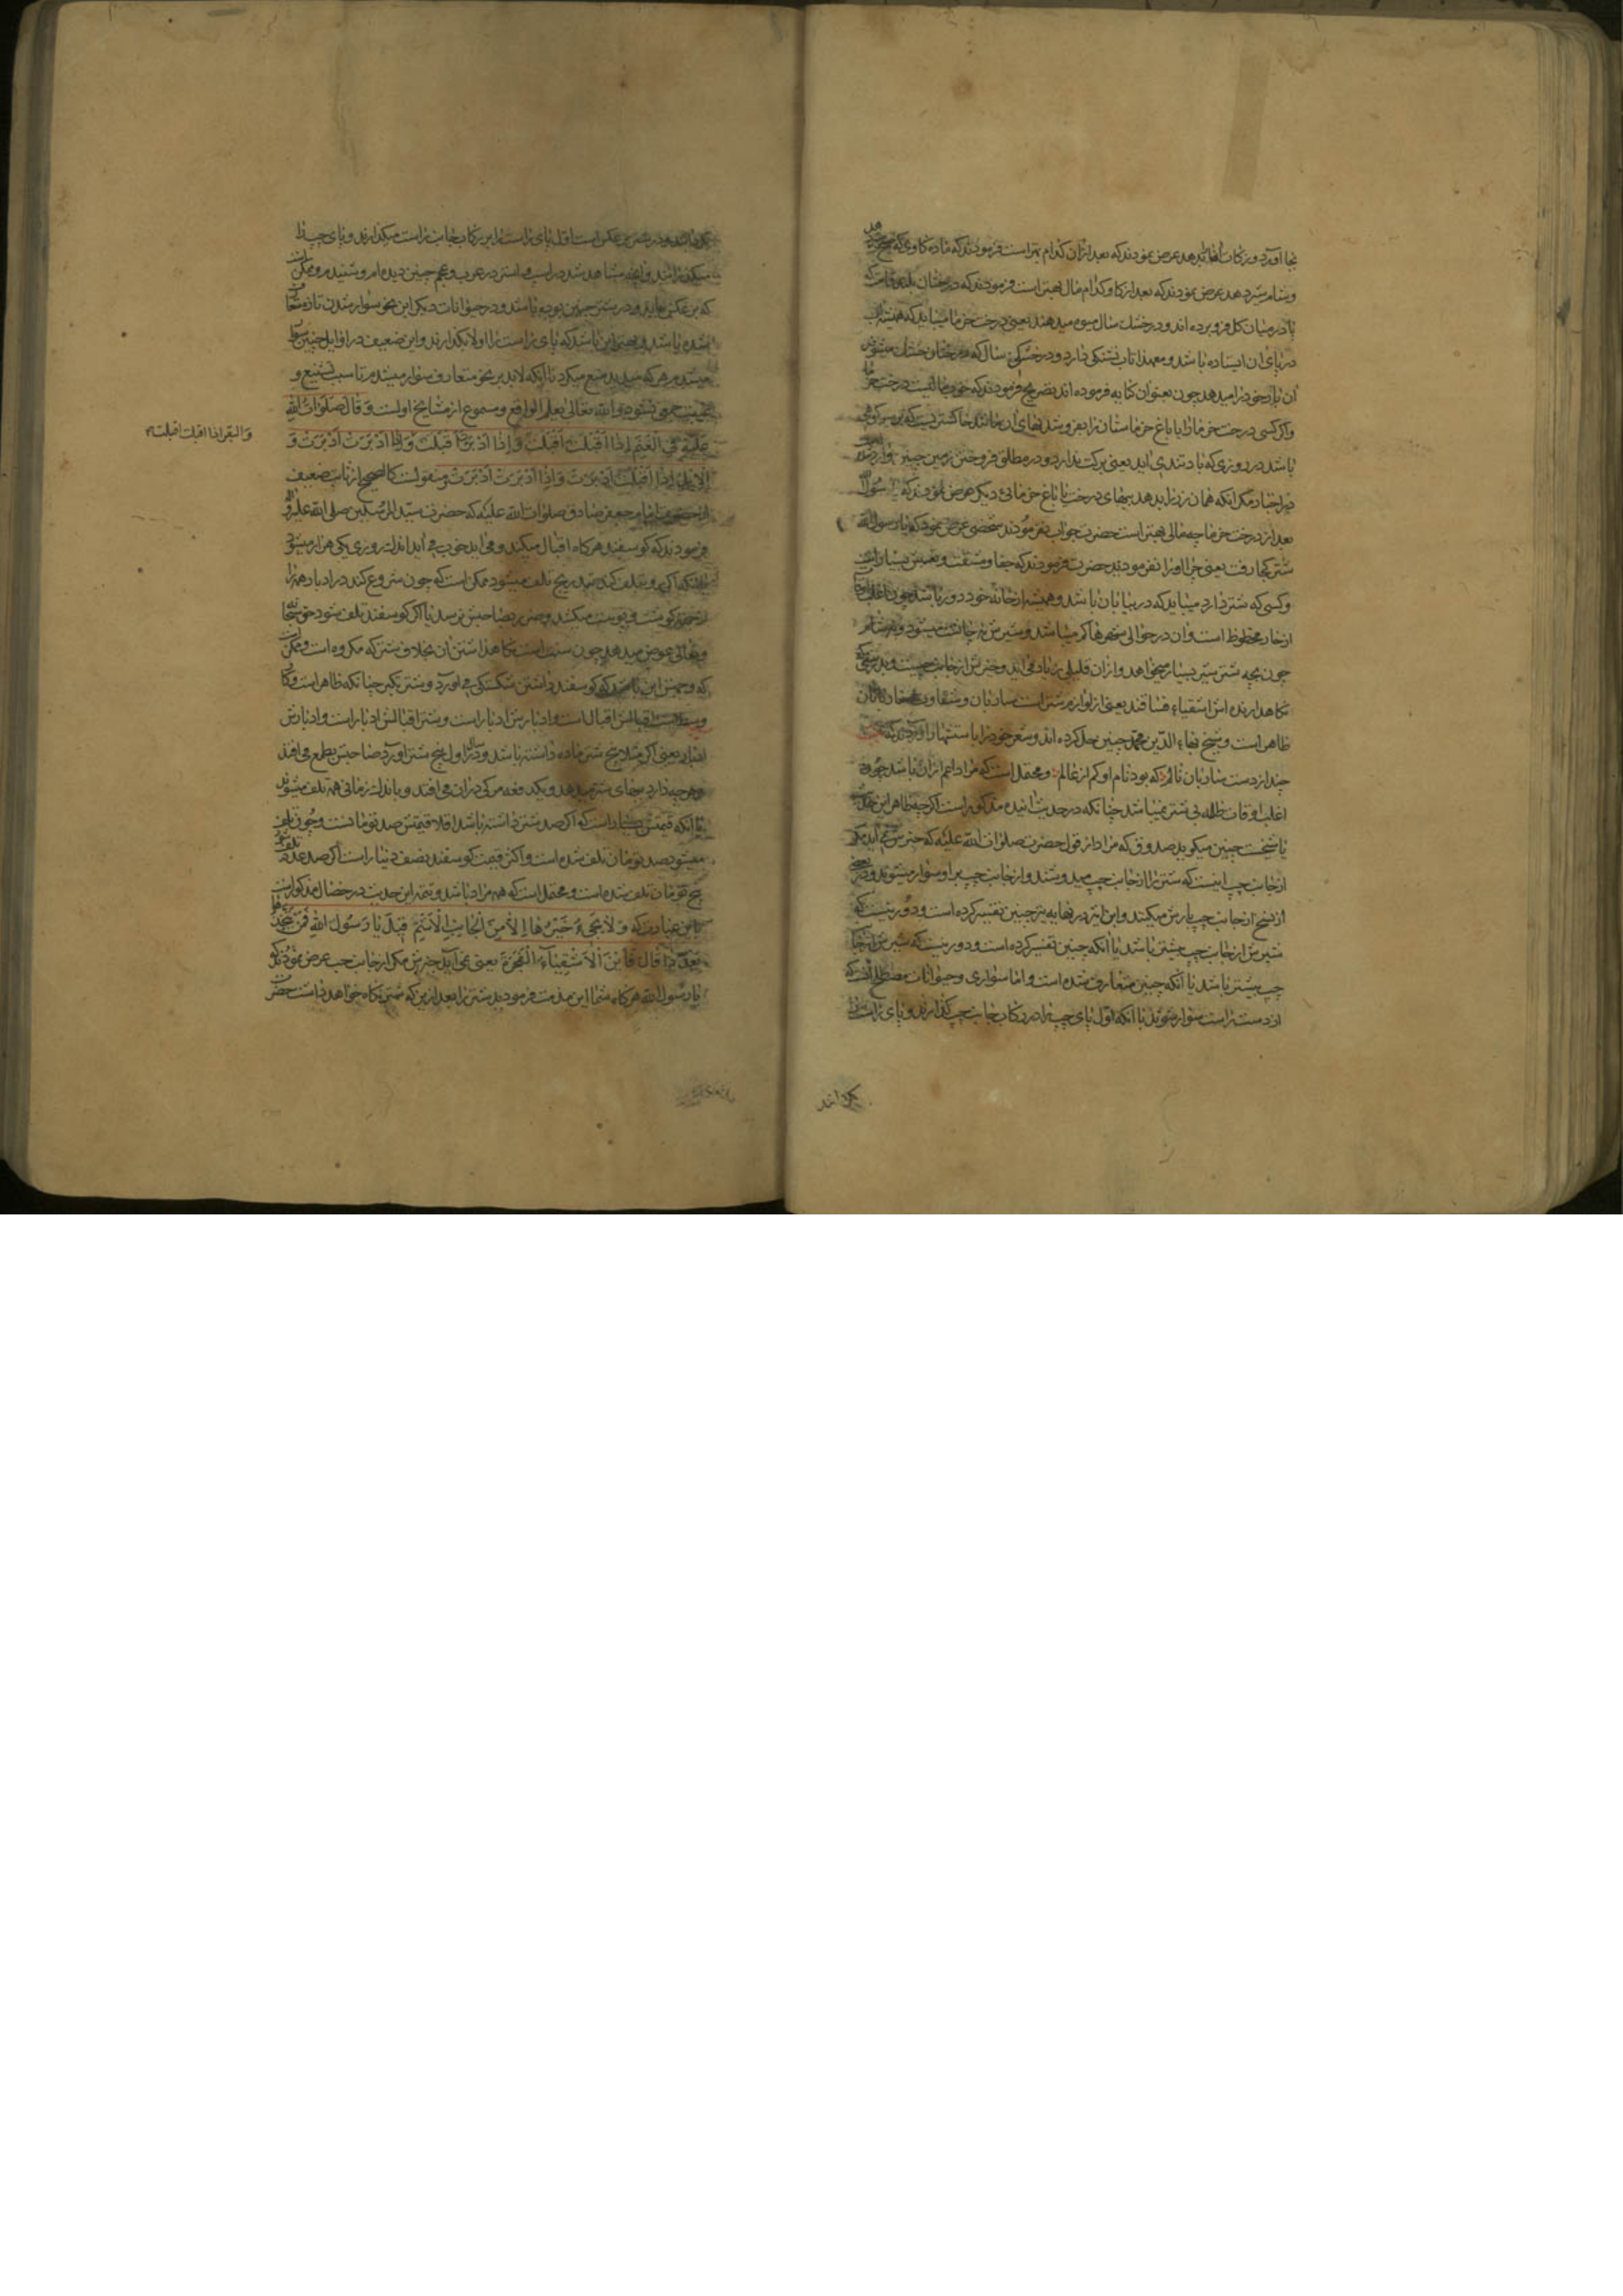 بجا آورد و زکات انها بدهد عرض نمودند که بعد از آن کدام بهتر است فرمودند که ماده کاوی که صبح شیر دهد
و شام شیر دهد عرض نمودند که بعد از کاو کدام مال بهتر است فرمودند که درختان بلند قامت که
پا در میان کل فرو برده اند و در خشک سال میوه میدهند یعنی درخت خرما میباید که همیشه آب
در پای ان ایستاده باشد و معهذا تاب تشنکی دارد و در خشکی سال که درختان خشک میشوند
ان بار خود را میدهد چون بعنوان کنایه فرموده اند بتصریح فرمودند که خوب مالیست درخت خرما
و اکر کسی درخت خرما را یا باغ خرماستان را بفروشد بهای ان مانند خاکستریست که بر سر کوهی
باشد در روزی که باد تندی اید یعنی برکت ندارد و در مطلق فروختن زمین چنین وارد است
در اخبار مکر انکه همان زر را بدهد ببهای درخت یا باغ خرمائی دیکر عرض نمودند که یا رسول الله
بعد از درخت خرما چه مالی بهتر است حضرت جواب نفرمودند شخصی عرض نمود که یا رسول الله
شتر کجا رفت یعنی چرا او را نفرمودید حضرت فرمودند که جفا و مشقت و تعبش بسیار است
و کسی که شتر دارد میباید که در بیابان باشد و همیشه از خانه خود دور باشد چون اغلب اوقات
از خار محظوظ است و ان در حوالی شهرها کم میباشد و شیرش در چاشت میشود و در شام
چون بچه شتر شیر بسیار میخواهد و از ان قلیلی زیاد می اید و خیرش از جانب چپست و بدرستی که
نکاهدارنده اش اشقیاء فساقند یعنی از لوازم شتر است ساربان و شقاوت ساربانان
ظاهر است و شیخ بهاء الدین محمد چنین حل کرده اند و شعر خود را باستشهاد آوردند که
چند از دست ساربان نالم که بود نام او کم از عالم و محتمل است که مراد اعم از ان باشد چون
اغلب اوقات ظلمه بی شتر نمیباشد چنانکه در حدیث اینده مذکور است اکر چه ظاهر این حدیث
با شیخست چنین میکوید صدوق که مراد از قول حضرت صلوات الله علیه که خیرش نمی آید مکر
از جانب چپ اینست که شتر را از جانب چپ میدوشند و از جانب چپ بر او سوار میشوند و در بعضی
از نسخ از جانب چپ بارش میکنند و ابن اثیر در نهایه نیز چنین تفسیر کرده است و دور نیست که
شیرش از جانب چپ بیشتر باشد یا انکه چنین تفسیر کرده است و دور نیست که شیرش از جانب
چپ بیشتر باشد یا انکه چنین متعارف شده است و اما سواری و حیوانات مصطلح انست که
از دست راست سوار شوند با انکه اول پای چپ را در رکاب جانب چپ کذارند و پای راست را
بکذرانند
بکذرانند و در شتر بر عکس است اول پای راست را بر رکاب جانب راست میکذارند و پای چپ را
میکذرانند و انچه مشاهد شد در اسب و استر در عرب و عجم چنین دیده ام و شنیدم و ممکن است
که بر عکس نمایند و در شتر چنین بوده باشد و در حیوانات دیکر این نحو سوار شدن تازه متعارف
شده باشد و بهتر این باشد که پای راست را اولا بکذارند و این ضعیف در اوایل چنین سوار
میشدم هر که میدید منع میکرد تا انکه لابد بر نحو متعارف سوار میشدم تا سبب تشنیع و
غیبت جمعی نشود و الله تعالی یعلم الواقع و مسموع از مشایخ اولست وَ قَالَ صَلَوَاتُ اللهِ
عَلَیْهِ فِی الْغَنَمِ اِذَا اَقْبَلَتْ اَقْبَلَتْ وَ اِذَا اَدْبَرَتْ اَقْبَلَتْ وَ اِذَا اَدْبَرَتْ اَدْبَرَتْ وَ
والبقر اذا اقبلت اقبلت
الْاِبِلُ اِذَا اَقْبَلَتْ اَدْبَرَتْ وَ اِذَا اَدْبَرَتْ اَدْبَرَتْ و منقولست کالصحیح از
از حضرت امام جعفر صادق صلوات الله علیه که حضرت سید المرسلین صلی الله علیه و آله
فرمودند که کوسفند هر کاه اقبال میکند و می اید خوب می اید اندک روزی یکی هزار میشود
از جهة کوشت و پوست میکشند و ضرر بصاحبش نرسد یا اکر کوسفند تلف شود حق سبحانه
و تعالی عوض میدهد چون سنت است نکاهداشتن ان بخلاف شتر که مکروه است و ممکن است
که وجهش این باشد که کوسفند داشتن شکستکی می اورد و شتر تکبر چنانکه ظاهر است و کاو
اقبالش اقبال است و ادبارش ادبار است و شتر اقبالش ادبار است و ادبارش
ادبار یعنی اکر مثلا پنج شتر ماده داشته باشد و در سال اول پنج شتر اورد صاحبش بطمع می افتد
و هر چه دارد ببهای شتر میدهد و یکدفعه مرکی در ان می افتد و باندک زمانی همه تلف میشوند
با انکه قیمتش بسیار است که اکر صد شتر داشته باشد اقلا قیمتش صد تومانست و چون تلف
میشود صد تومان تلف شده است و اکثر قیمت کوسفند نصف دینار است اکر صد عدد تلف شود
پنج تومان تلف شده است و محتمل است که همه مراد باشد و تتمه این حدیث در خصال مذکور است
باین عبارت که وَ لَا یَجِیءُ خَیْرُهَا اِلَّا مِنَ الْجَانِبِ الْاَشْئَمِ قِیلَ یَا رَسُولَ اللهِ فَمَنْ یَتَّخِذُهَا
بَعْدَ ذَا قَالَ فَاَیْنَ الْاَشْقِیَاءُ الْفَجَرَةُ یعنی نمی آید خیرش مکر از جانب چپ عرض نمودند که
یا رسول الله هر کاه شما این مذمت فرمودید شتر را بعد از این که شتر نکاه خواهد داشت حضرت